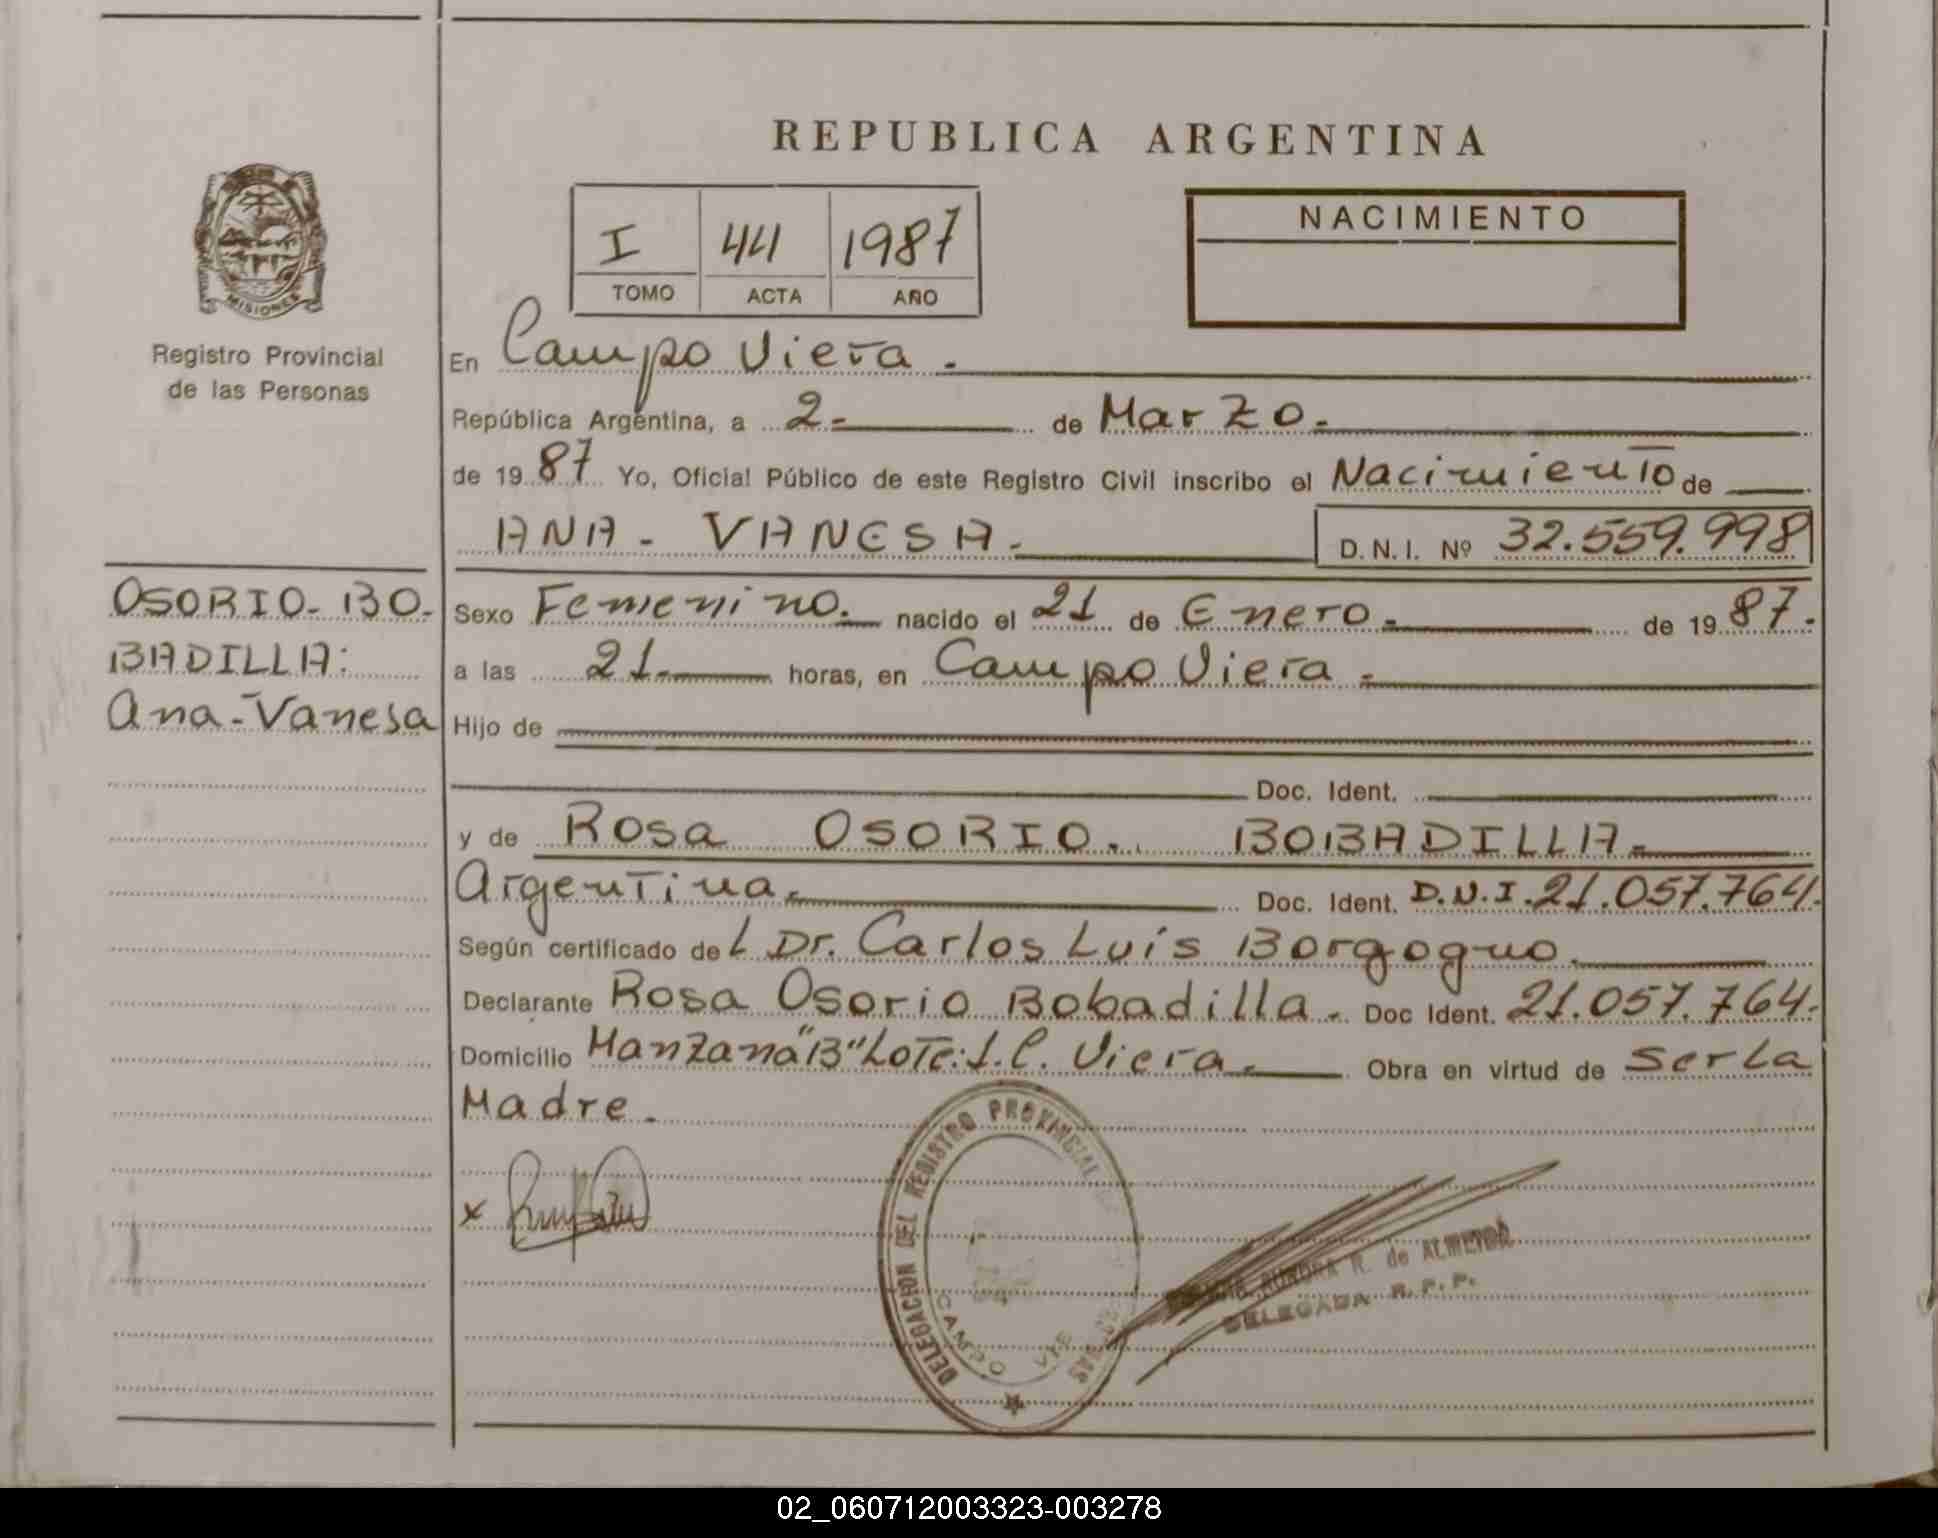 REPUBLICA ARGENTINA
I 44 1987
TOMO ACTA AÑO
NACIMIENTO
MISIONES
Registro Provincial
de las Personas
En Campo Viera.
República Argentina, a 2. de Marzo.
de 1987 Yo, Oficial Público de este Registro Civil inscribo el Nacimiento de
ANA - VANESA. D.N.I. Nº 32.559.998
OSORIO - BO-
BADILLA:
Ana - Vanesa
Sexo Femenino. nacido el 21 de Enero. de 1987.
a las 21. horas, en Campo Viera.
Hijo de
Doc. Ident.
y de Rosa OSORIO. BOBADILLA.
Argentina. Doc. Ident. D.N.I. 21.057.764.
Según certificado del Dr. Carlos Luis Borgogno.
Declarante Rosa Osorio Bobadilla. Doc Ident. 21.057.764.
Domicilio Manzana "B" Lote: 1. C. Viera. Obra en virtud de Ser La
Madre.
x
DELEGACION DEL REGISTRO PROVINCIAL
CAMPO VIE
R. de ALMEIDA
DELEGADA R.P.P.
02_060712003323-003278